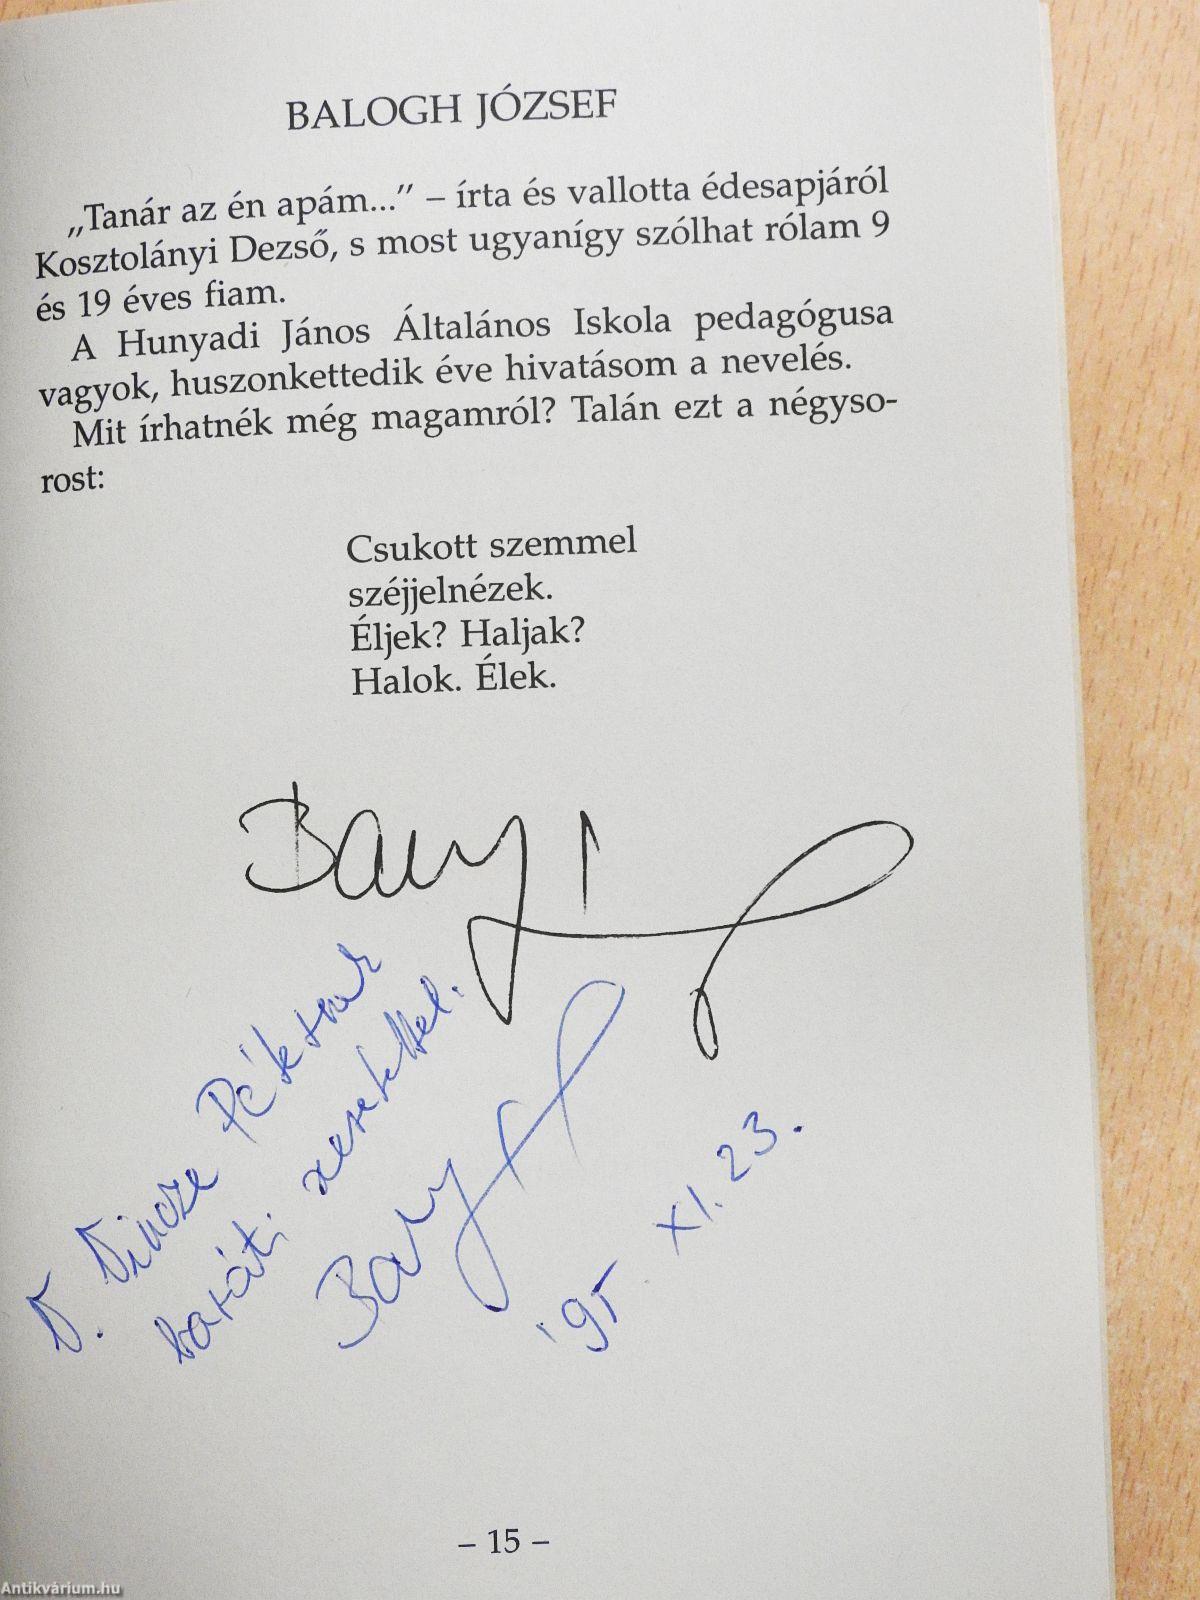 BALOGH JÓZSEF
„Tanár az én apám...” – írta és vallotta édesapjáról
Kosztolányi Dezső, s most ugyanígy szólhat rólam 9
és 19 éves fiam.
A Hunyadi János Általános Iskola pedagógusa
vagyok, huszonkettedik éve hivatásom a nevelés.
Mit írhatnék még magamról? Talán ezt a négyso-
rost:
Csukott szemmel
széjjelnézek.
Éljek? Haljak?
Halok. Élek.
baráti szeretettel.
'95 XI. 23.
– 15 –
Antikvárium.hu